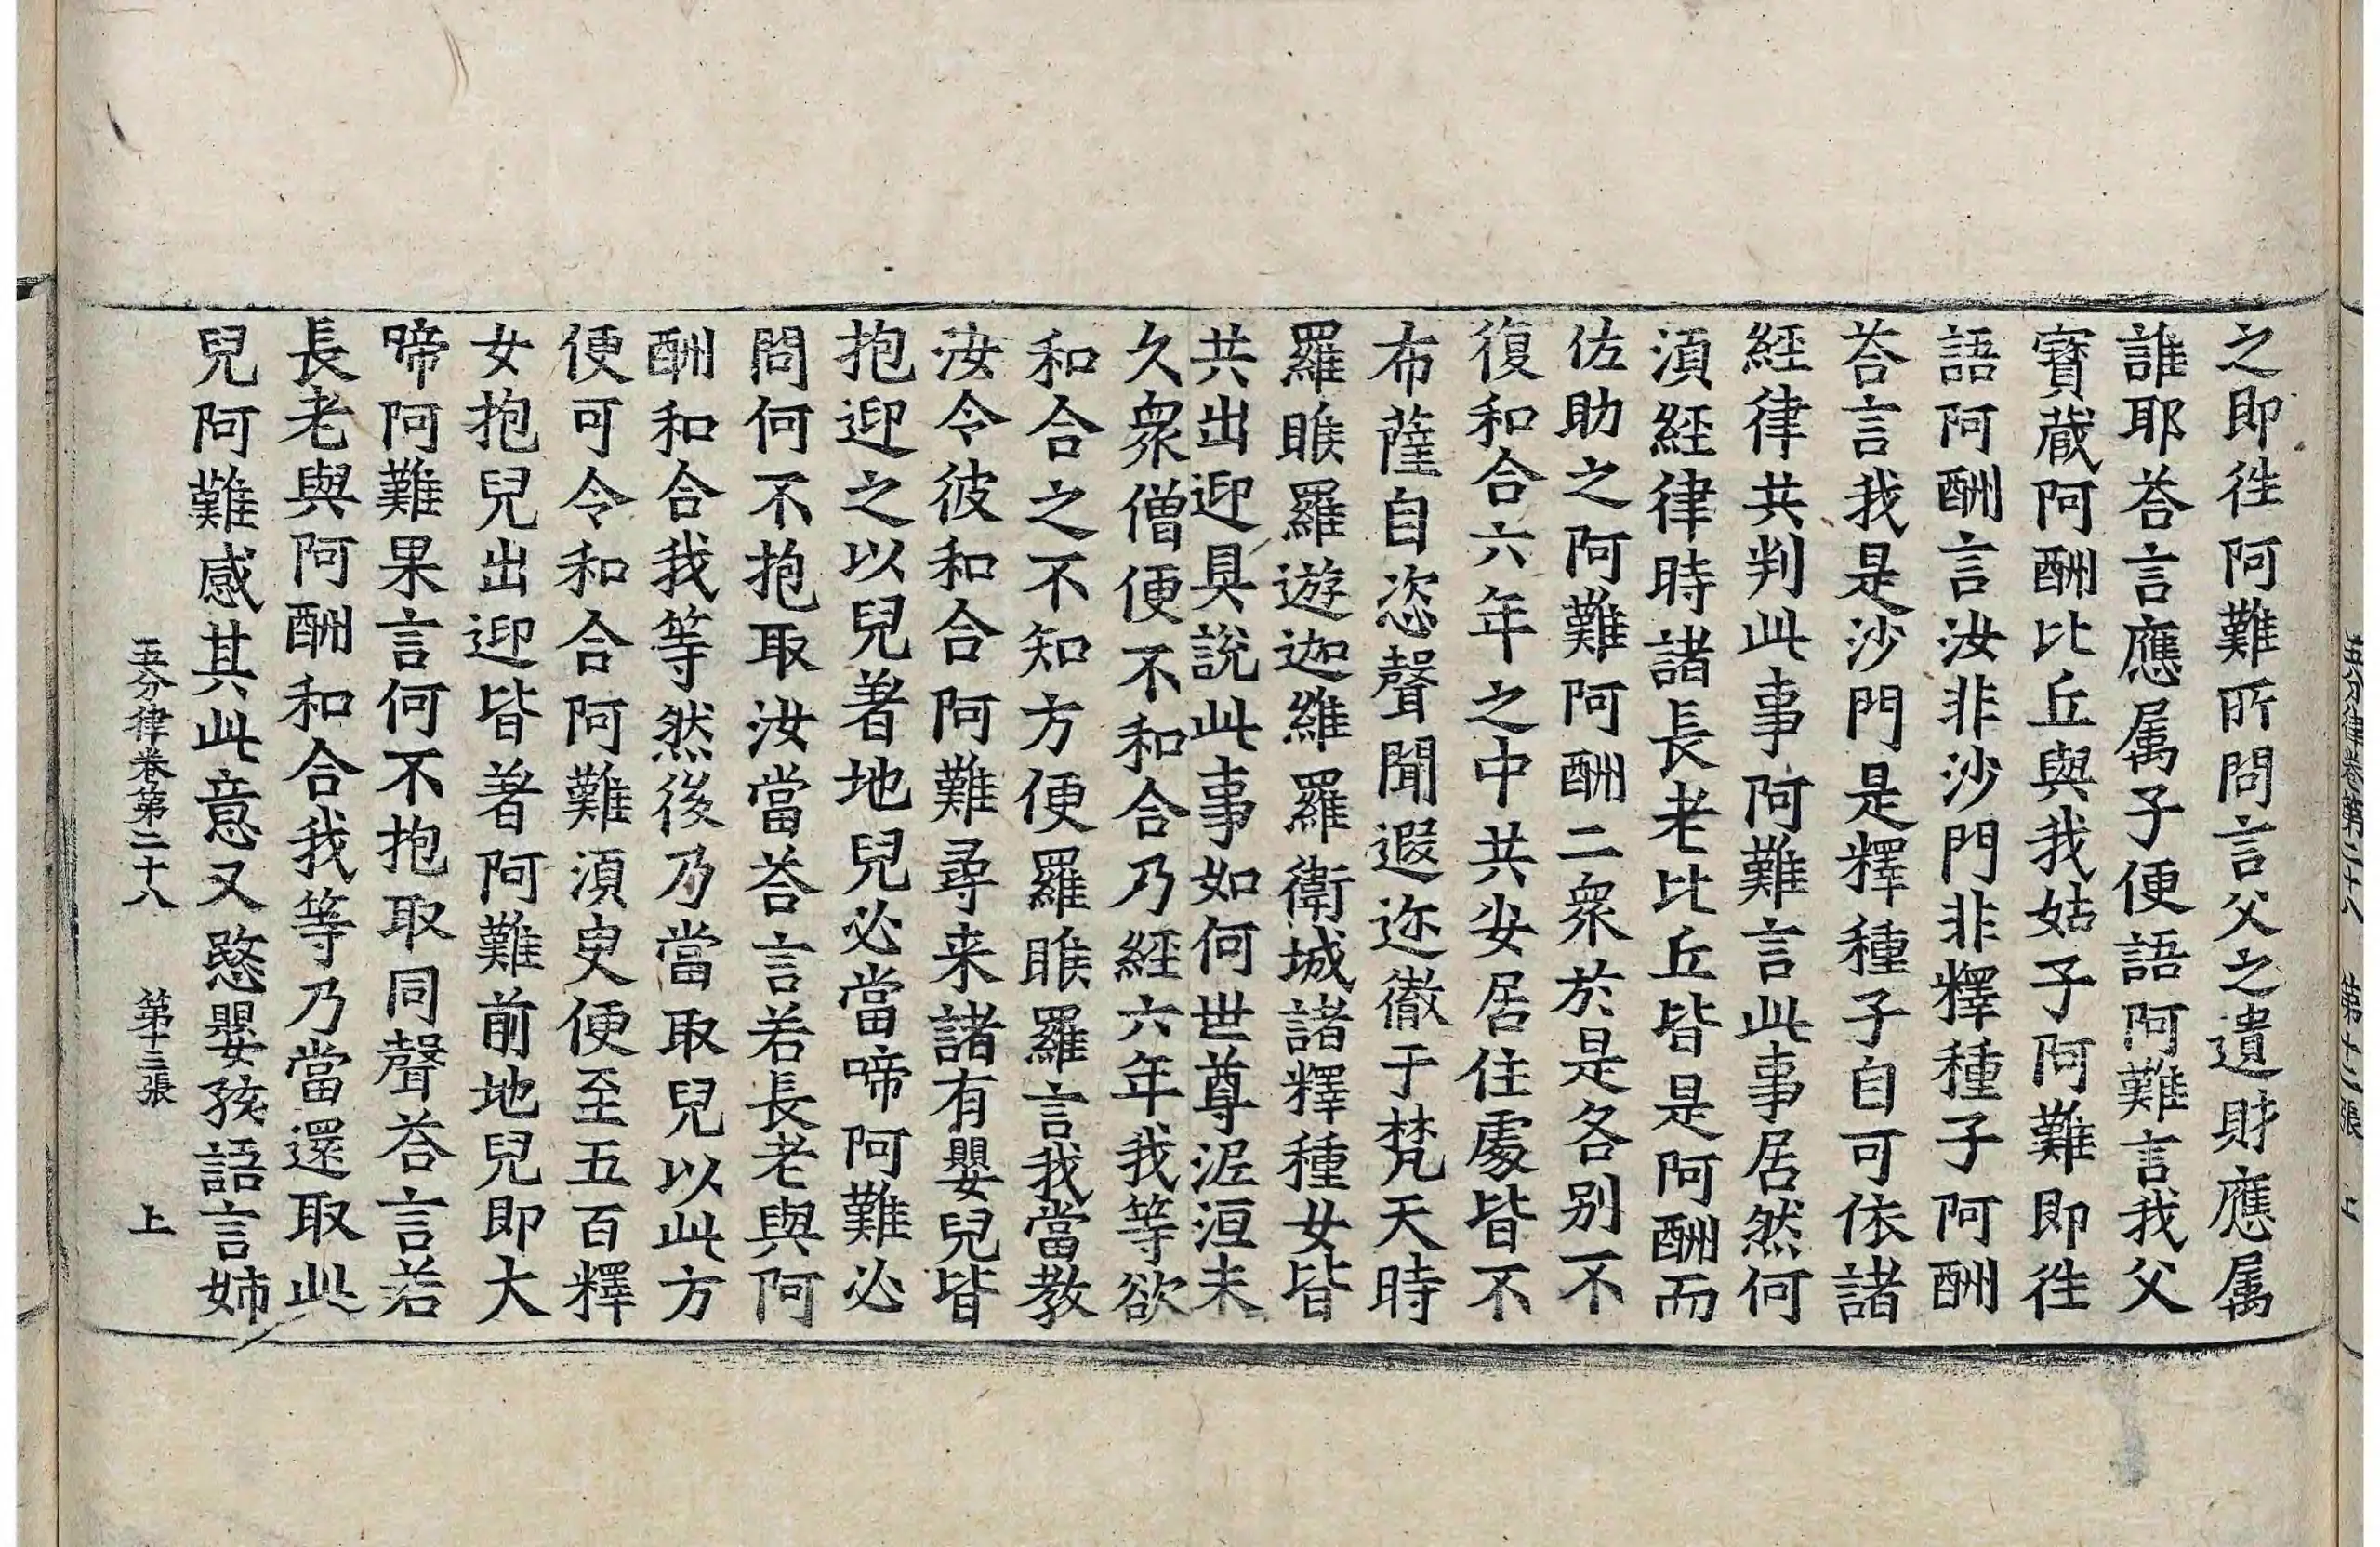 五分律卷第二十八 第十二張 上
之即徃阿難所問言父之遺財應属
誰耶荅言應属子便語阿難言我父
寳藏阿酬比丘與我姑子阿難即徃
語阿酬言汝非沙門非釋種子阿酬
荅言我是沙門是釋種子自可依諸
經律共判此事阿難言此事居然何
湏經律時諸長老比丘皆是阿酬而
佐助之阿難阿酬二衆於是各別不
復和合六年之中共安居住處皆不
布薩自恣聲聞遐迩徹于梵天時
羅睺羅遊迦維羅衛城諸釋種女皆
共出迎具說此事如何世尊泥洹未
久衆僧便不和合乃經六年我等欲
和合之不知方便羅睺羅言我當教
汝令彼和合阿難尋来諸有嬰兒皆
抱迎之以兒著地兒必當啼阿難必
問何不抱取汝當荅言若長老與阿
酬和合我等然後乃當取兒以此方
便可令和合阿難湏臾便至五百釋
女抱兒出迎皆著阿難前地兒即大
啼阿難果言何不抱取同聲荅言若
長老與阿酬和合我等乃當還取此
兒阿難感其此意又愍嬰孩語言姉
五分律卷第二十八 第十三張 上